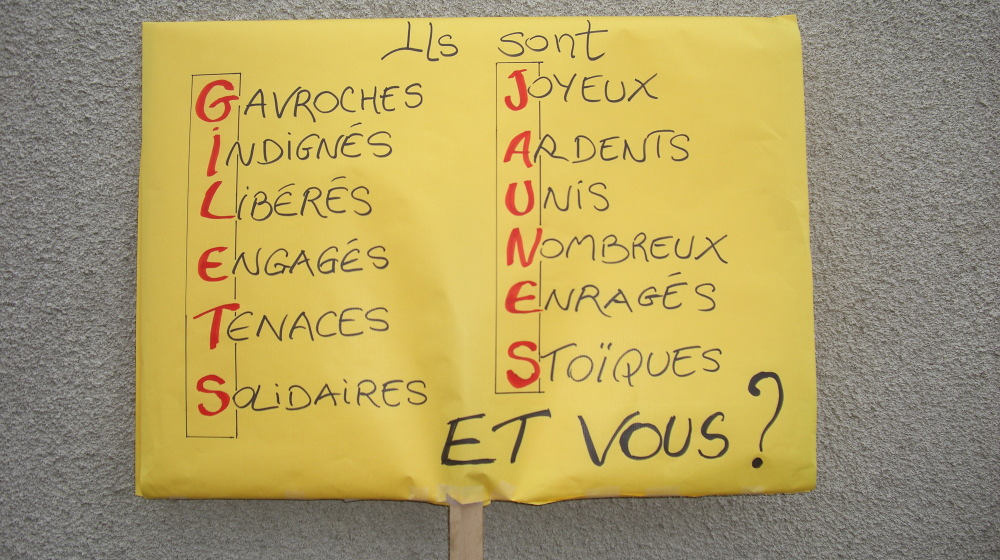 Ils sont
GAVROCHES
INDIGNÉS
LIBÉRÉS
ENGAGÉS
TENACES
SOLIDAIRES
JOYEUX
ARDENTS
UNIS
NOMBREUX
ENRAGÉS
STOÏQUES
ET VOUS ?